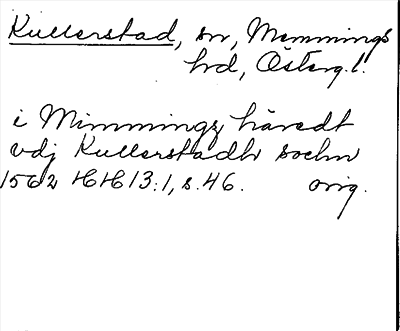 Kullerstad, sn, Memmings
hd, Österg.l.
i Mimmingz häredt
vdj Kullerstadh sochn
1562 HH 13:1, s. 46. orig.